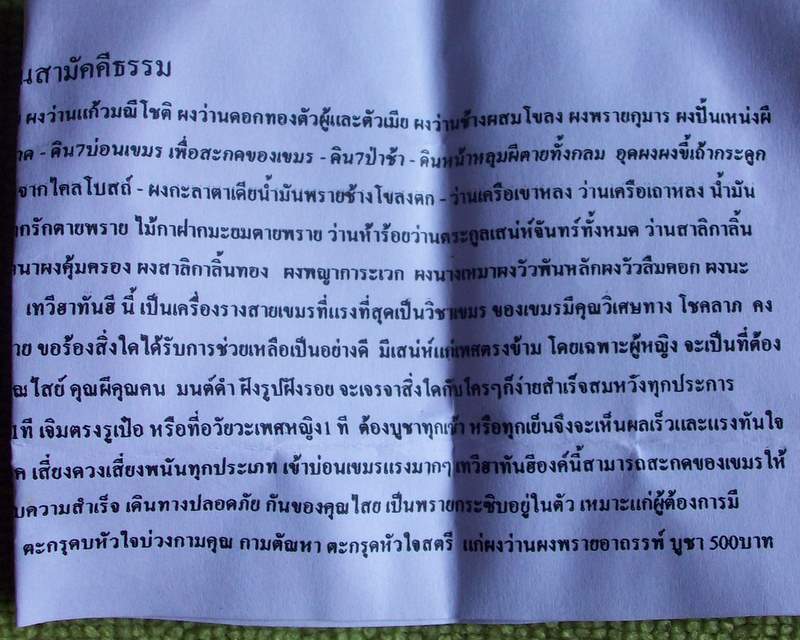 นสามัคคีธรรม
ผงว่านแก้วมณีโชติ ผงว่านดอกทองตัวผู้และตัวเมีย ผงว่านช้างผสมโขลง ผงพรายกุมาร ผงปั้นเหน่งผี
าด - ดิน7บ่อนเขมร เพื่อสะกดของเขมร - ดิน7ป่าช้า - ดินหน้าหลุมผีตายทั้งกลม อุดผงผงขี้เถ้ากระดูก
จากไคลโบสถ์ - ผงกะลาตาเดียน้ำมันพรายช้างโขลงตก - ว่านเครือเขาหลง ว่านเครือเถาหลง น้ำมัน
กรักตายพราย ไม้กาฝากมะยมตายพราย ว่านห้าร้อยว่านตระกูลเสน่ห์จันทร์ทั้งหมด ว่านสาลิกาลิ้น
นาผงคุ้มครอง ผงสาลิกาลิ้นทอง ผงพญาการะเวก ผงนางเหมาผงวัวพันหลักผงวัวลืมคอก ผงนะ
เทวีฮาทันฮี นี้ เป็นเครื่องรางสายเขมรที่แรงที่สุดเป็นวิชาเขมร ของเขมรมีคุณวิเศษทาง โชคลาภ คง
าย ขอร้องสิ่งใดได้รับการช่วยเหลือเป็นอย่างดี มีเสน่ห์แก่เพศตรงข้าม โดยเฉพาะผู้หญิง จะเป็นที่ต้อง
ณไสย์ คุณผีคุณคน มนต์ดำ ฝังรูปฝังรอย จะเจรจาสิ่งใดกับใครๆก็ง่ายสำเร็จสมหวังทุกประการ
1ที เจิมตรงรูเป๋อ หรือที่อวัยวะเพศหญิง1 ที ต้องบูชาทุกเช้า หรือทุกเย็นจึงจะเห็นผลเร็วและแรงทันใจ
ค เสี่ยงดวงเสี่ยงพนันทุกประเภท เข้าบ่อนเขมรแรงมากๆ เทวีฮาทันฮีองค์นี้สามารถสะกดของเขมรให้
บความสำเร็จ เดินทางปลอดภัย กันของคุณไสย เป็นพรายกระซิบอยู่ในตัว เหมาะแก่ผู้ต้องการมี
ตะกรุดบหัวใจบ่วงกามคุณ กามตัณหา ตะกรุดหัวใจสตรี แก่ผงว่านผงพรายอาถรรพ์ บูชา 500บาท